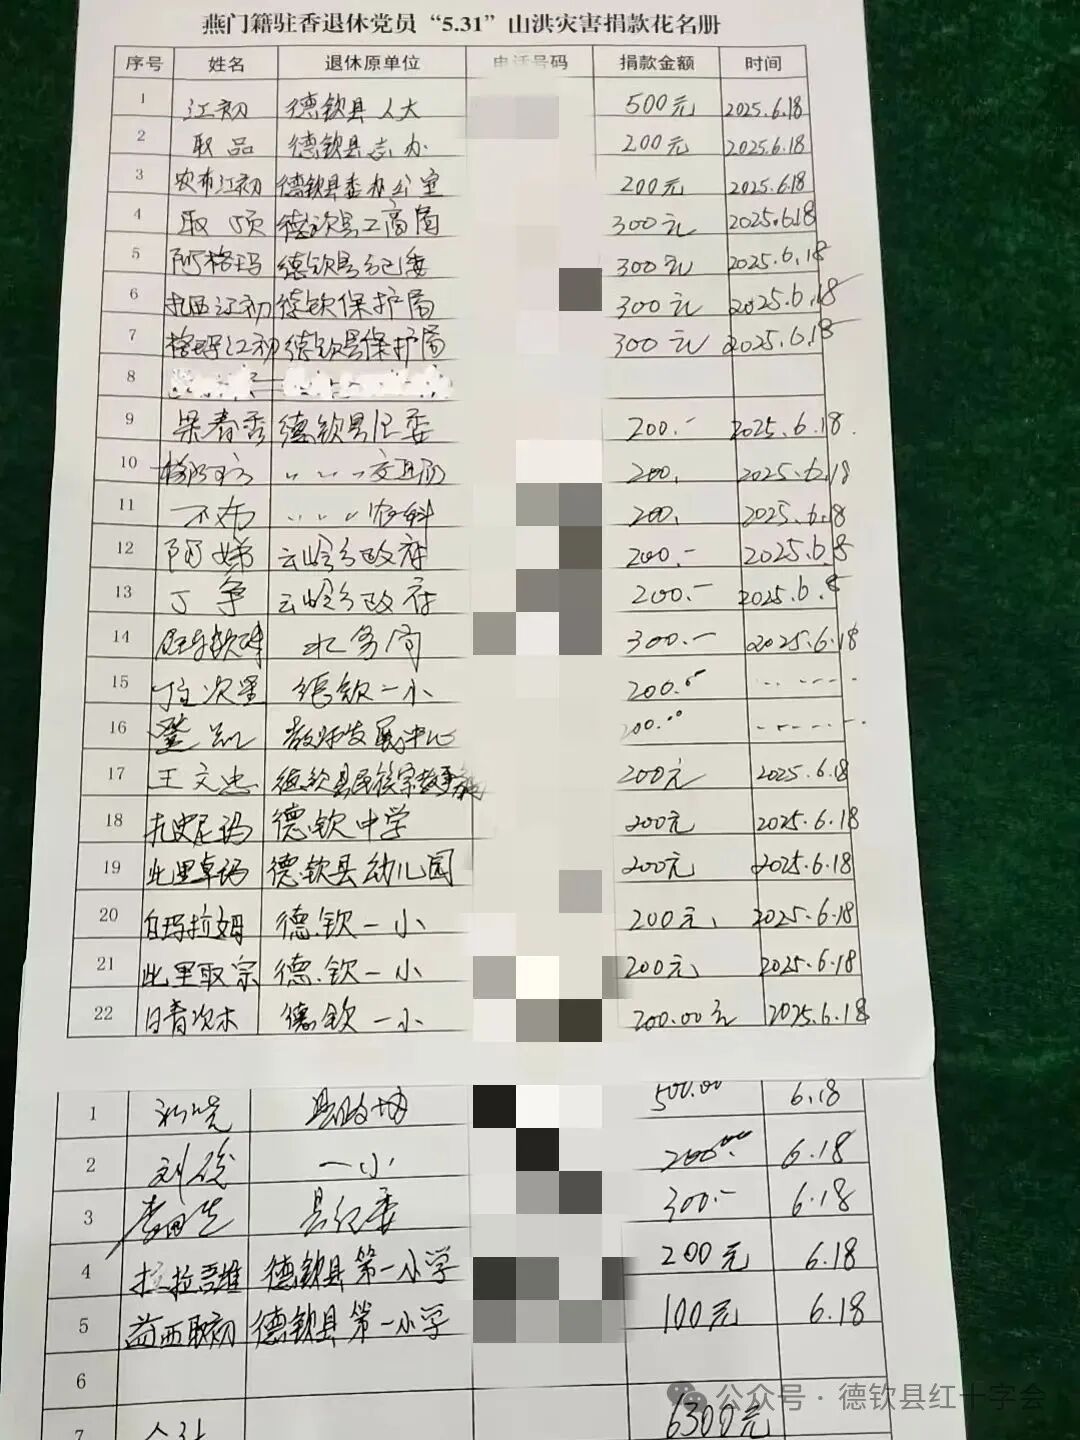 燕门籍驻香退休党员“5.31”山洪灾害捐款花名册
序号 姓名 退休原单位 电话号码 捐款金额 时间
1 江初 德钦县人大 500元 2025.6.18
2 取品 德钦县志办 200元 2025.6.18
3 农布江初 德钦县委办公室 200元 2025.6.18
4 取顷 德钦县工商局 300元 2025.6.18
5 阿格玛 德钦县纪委 300元 2025.6.18
6 扎西江初 德钦保护局 300元 2025.6.18
7 格玛江初 德钦县保护局 300元 2025.6.18
8
9 梁春秀 德钦县纪委 200.- 2025.6.18.
10 200. 2025.6.18
11 不布 农科 200. 2025.6.18
12 阿娣 云岭乡政府 200.- 2025.6.8
13 丁争 云岭乡政府 200.- 2025.6.8
14 水务局 300.- 2025.6.18
15 次里 德钦一小 200.
16 教师发展中心 200.00
17 王文忠 德钦县民族宗教事务局 200元 2025.6.18
18 扎史尼玛 德钦中学 200元 2025.6.18
19 此里卓玛 德钦县幼儿园 200元 2025.6.18
20 白玛拉姆 德钦一小 200元 2025.6.18
21 此里取宗 德钦一小 200元 2025.6.18
22 日青次木 德钦一小 200.00元 2025.6.18
1 500.00 6.18
2 刘俊 一小 200.00 6.18
3 县纪委 300.- 6.18
4 拉拉吾维 德钦县第一小学 200元 6.18
5 益西取初 德钦县第一小学 100元 6.18
6
7 合计 6300元
公众号·德钦县红十字会